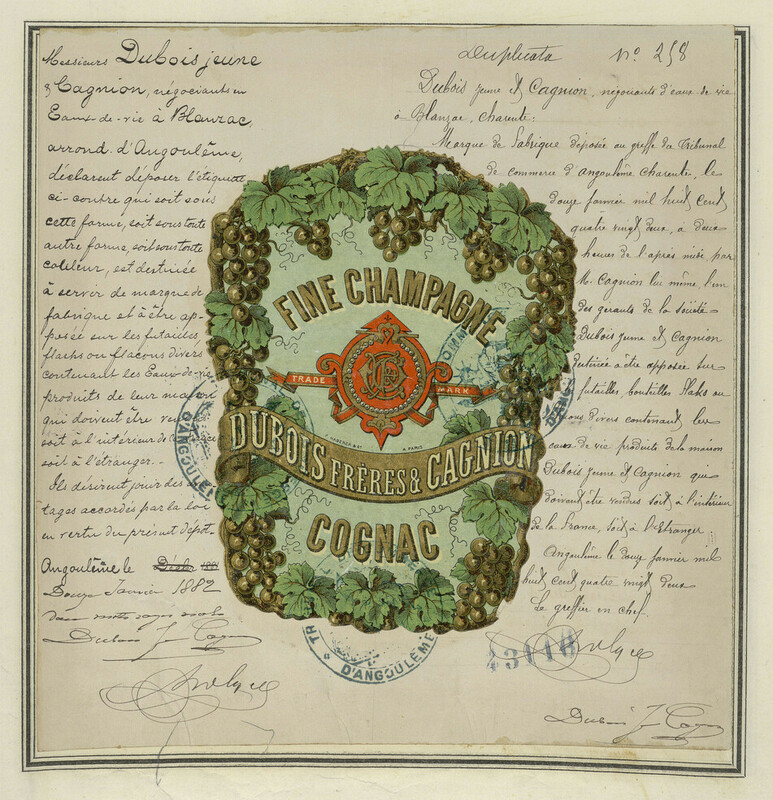 Messieurs Dubois jeune
& Cagnion, négociants en
Eaux-de-vie à Blanzac,
arrond. d'Angoulême,
déclarent déposer l'étiquette
ci-contre qui soit sous
cette forme, soit sous toute
autre forme, soit sous toute
couleur, est destinée
à servir de marque de
fabrique et à être ap-
posée sur les futailles
flasks ou flacons divers
contenant les Eaux-de-vie
produits de leur maison
qui doivent être
soit à l'intérieur de la
soit à l'étranger.
Ils désirent jouir des
tages accordés par la loi
en vertu du présent dépôt.
Angoulême le
Douze Janvier 1882
Dubois Je Cagnion
FINE CHAMPAGNE
TRADE MARK
DUBOIS FRÈRES & CAGNION
COGNAC
D'ANGOULÊME
TR
D'ANGOULÊME
D'ANG
Duplicata No 258
Dubois jeune et Cagnion, négociants d'eaux de vie
à Blanzac, Charente:
Marque de fabrique déposée au greffe du Tribunal
de commerce d'Angoulême Charente, le
douze janvier mil huit cent
quatre vingt deux, à deux
heures de l'après midi par
M. Cagnion lui même l'un
des gérants de la société
Dubois jeune et Cagnion
destinée à être apposée sur
futailles, bouteilles, flasks ou
divers contenant les
eaux de vie produits de la maison
Dubois jeune et Cagnion qui
doivent être vendus soit à l'intérieur
de la France, soit à l'Etranger.
Angoulême le douze janvier mil
huit cent quatre vingt Deux
Le greffier en chef.
43118
Dubois Je Cagnion